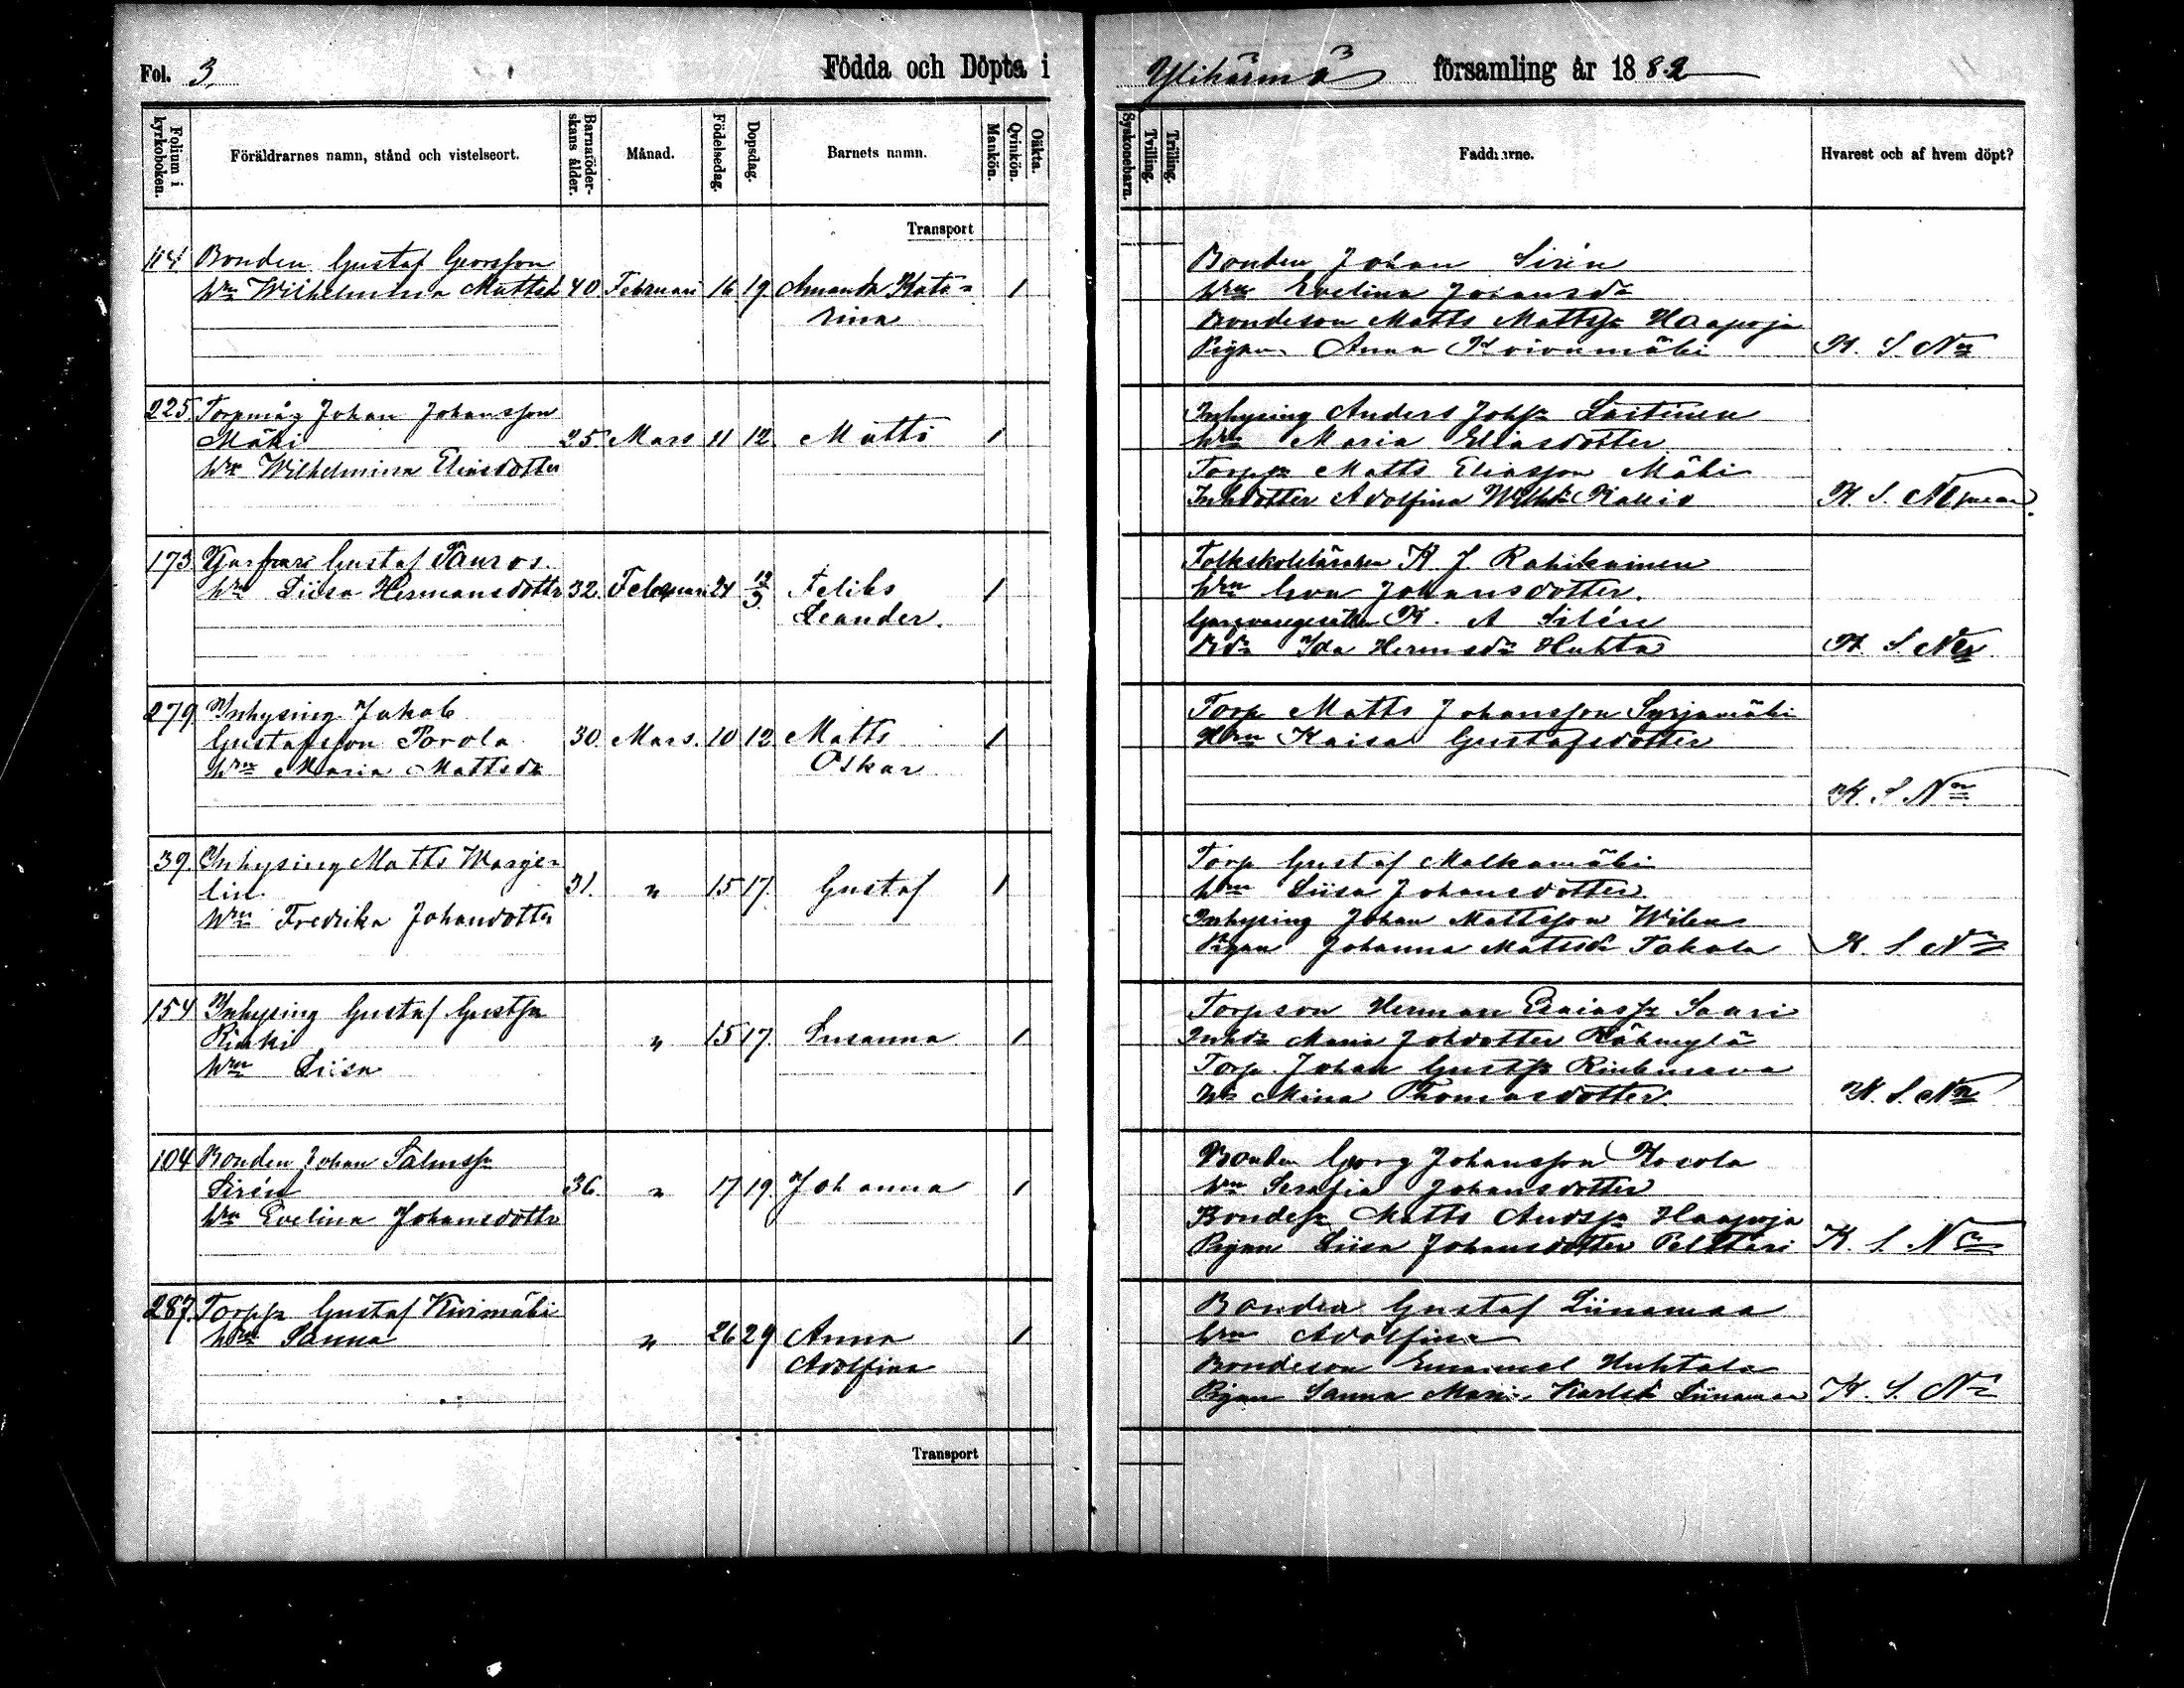 Fol. 3 Födda och Döpta i Ylihärmä församling år 1882
Folium i kyrkoboken.
Föräldrarnes namn, stånd och vistelseort.
Barnaföderskans ålder.
Månad.
Födelsedag.
Dopsdag.
Barnets namn.
Mankön.
Qvinkön.
Oäkta.
Syskonebarn.
Tvilling.
Trilling.
Faddrarne.
Hvarest och af hvem döpt?
Transport
114 Bonden Gustaf Georsson
hru Wilhelmina Mattsd 40 Februari 16 19 Amanda Kata-
rina 1
Bonden Johan Sirén
hru Evelina Johansdr
Bondeson Matts Mattssn Haapoja
Pigan Anna Koivumäki K. S. Nn
225. Torpmåg Johan Johansson
Mäki 25. Mars 11 12. Matti 1
hru Wilhelmina Eliasdotter
Inhysing Anders Johssn
hru Maria Eliasdotter
Torpsn Matts Eliasson Mäki
Inhdotter Adolfina Kallio K. S. Nyman.
173 Gustaf Tauros.
hru Liisa Hermansdottr 32. Februari 24 12/3 Feliks
Leander. 1
Folkskoleläraren K J Rahikainen
hru Eva Johansdotter.
Garfvaregesällen K. A Silén
Bdr Ida Hermsdr Huhta K. S Nn
279. Inhysing Jakob
Gustafsson Porola 30. Mars. 10 12 Matts
hru Maria Mattsdr Oskar 1
Torp Matts Johansson Syrjämäki
Hru Kaisa Gustafsdotter
K. S. Nn
39. Inhysing Matts Marje-
lin 31. " 15 17. Gustaf 1
hru Fredrika Johansdotter
Torp Gustaf Malkamäki
hru Liisa Johansdotter.
Inhysing Johan Mattsson Wilen
Pigan Johanna Mattsdr Takala K. S. Nn
154 Inhysing Gustaf Gustsn
" 15 17. Susanna 1
hru Liisa
Torpson Herman Esaiassn Saari
Inhdr Maria Johdotter
Torp. Johan Gustsn
hu Mina Thomasdotter. K. S. Nn
104 Bonden Johan Salmssn
Sirén 36. " 17 19. Johanna 1
hru Evelina Johansdottr
Bonden Georg Johansson Kosola
hru Serafia Johansdotter
Bondesn Matts Andssn Haapoja
Pigan Liisa Johansdotter Peltteri K. S. Nn
287. Torpsn Gustaf Kivimäki
hru Sanna " 26 29 Anna
Adolfina 1
Bonden Gustaf Liinamaa
hru Adolfina
Bondeson Emanuel Huhtala
Pigan Sanna Maria Karlsdr Liinamaa K. S. Nn
Transport